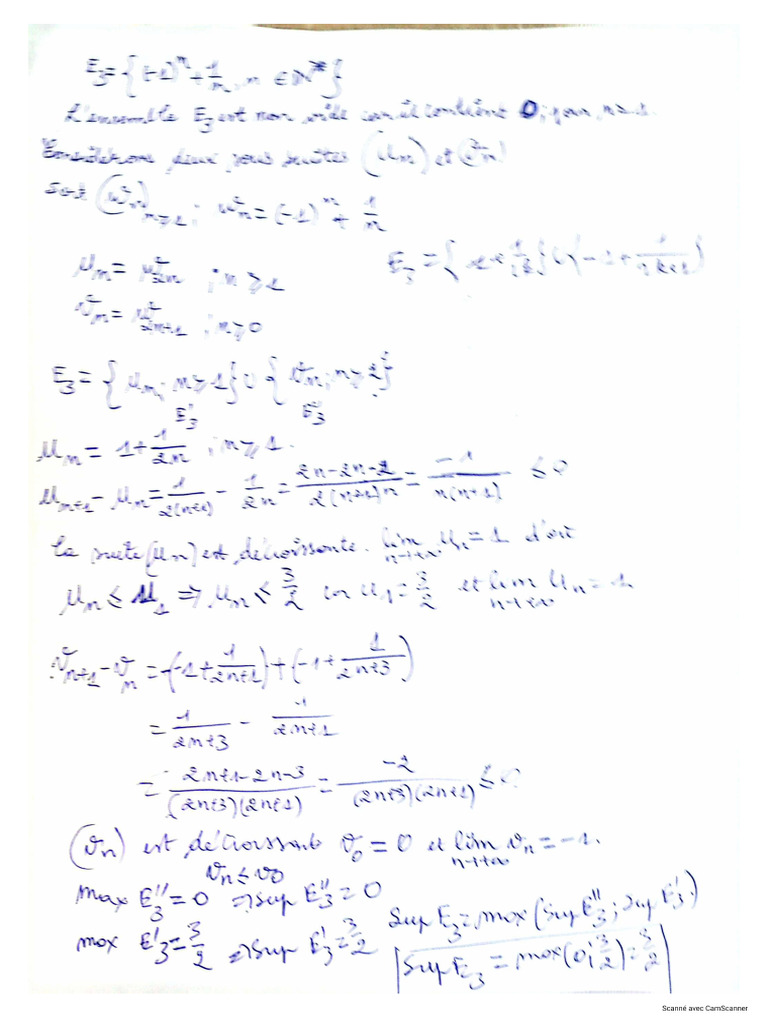 E₃ = { (-1)ⁿ + 1/n, n ∈ ℕ* }
L'ensemble E₃ est non vide car il contient 0, pour n = 1.
Considérons deux sous suites (Un) et (Vn)
Soit (wn) n ≥ 1 ; wn = (-1)ⁿ + 1/n
Un = w2n ; n ≥ 1
E₃ = { 1 + 1/2k } ∪ { -1 + 1/2k+1 }
Vn = w2n+1 ; n ≥ 0
E₃ = { Un, n ≥ 1 } ∪ { Vn, n ≥ }
E'₃ E''₃
Un = 1 + 1/2n ; n ≥ 1.
Un+1 - Un = 1/2(n+1) - 1/2n = 2n-2n-2/2(n+1)n = -1/n(n+1) ≤ 0
la suite (Un) est décroissante. lim n→+∞ Un = 1 d'où
Un ≤ U1 ⇒ Un ≤ 3/2 car U1 = 3/2 et lim n→+∞ Un = 1.
Vn+1 - Vn = -(-1 + 1/2n+1) + (-1 + 1/2n+3)
= 1/2n+3 - 1/2n+1
= 2n+1-2n-3/(2n+3)(2n+1) = -2/(2n+3)(2n+1) ≤ 0
(Vn) est décroissant V0 = 0 et lim n→+∞ Vn = -1.
Vn ≤ V0
max E''₃ = 0 ⇒ sup E''₃ = 0
max E'₃ = 3/2 ⇒ sup E'₃ = 3/2
Sup E₃ = max (sup E''₃ ; sup E'₃)
Sup E₃ = max (0 ; 3/2) = 3/2
Scanné avec CamScanner